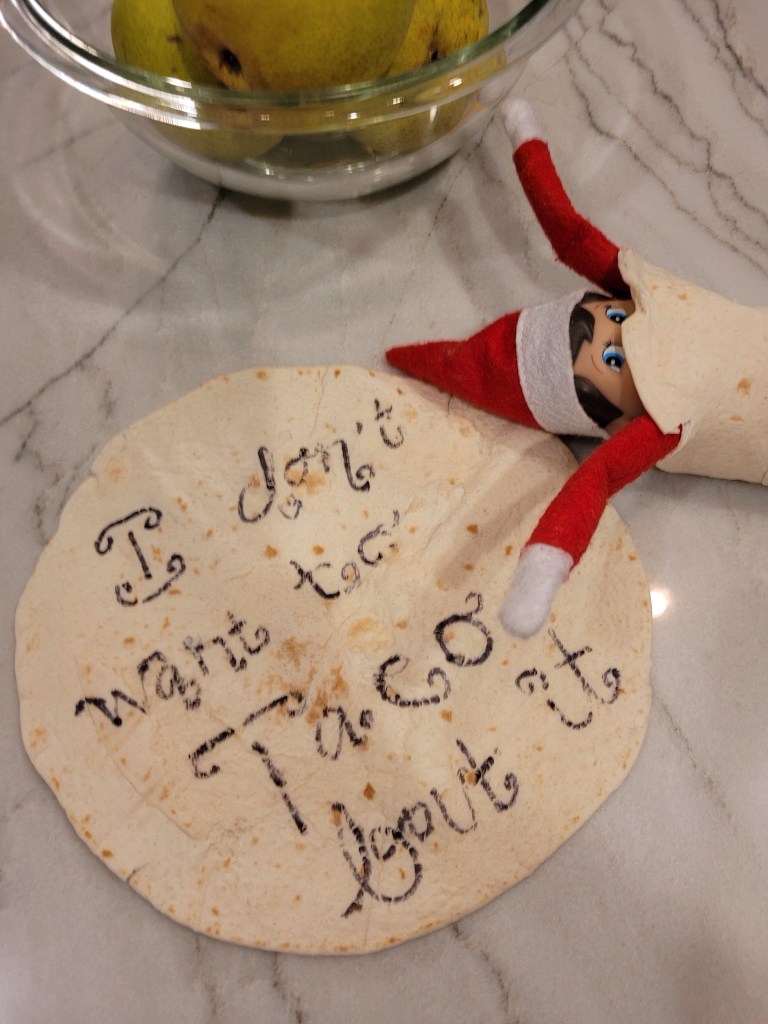 I don't
want to
Taco
bout it